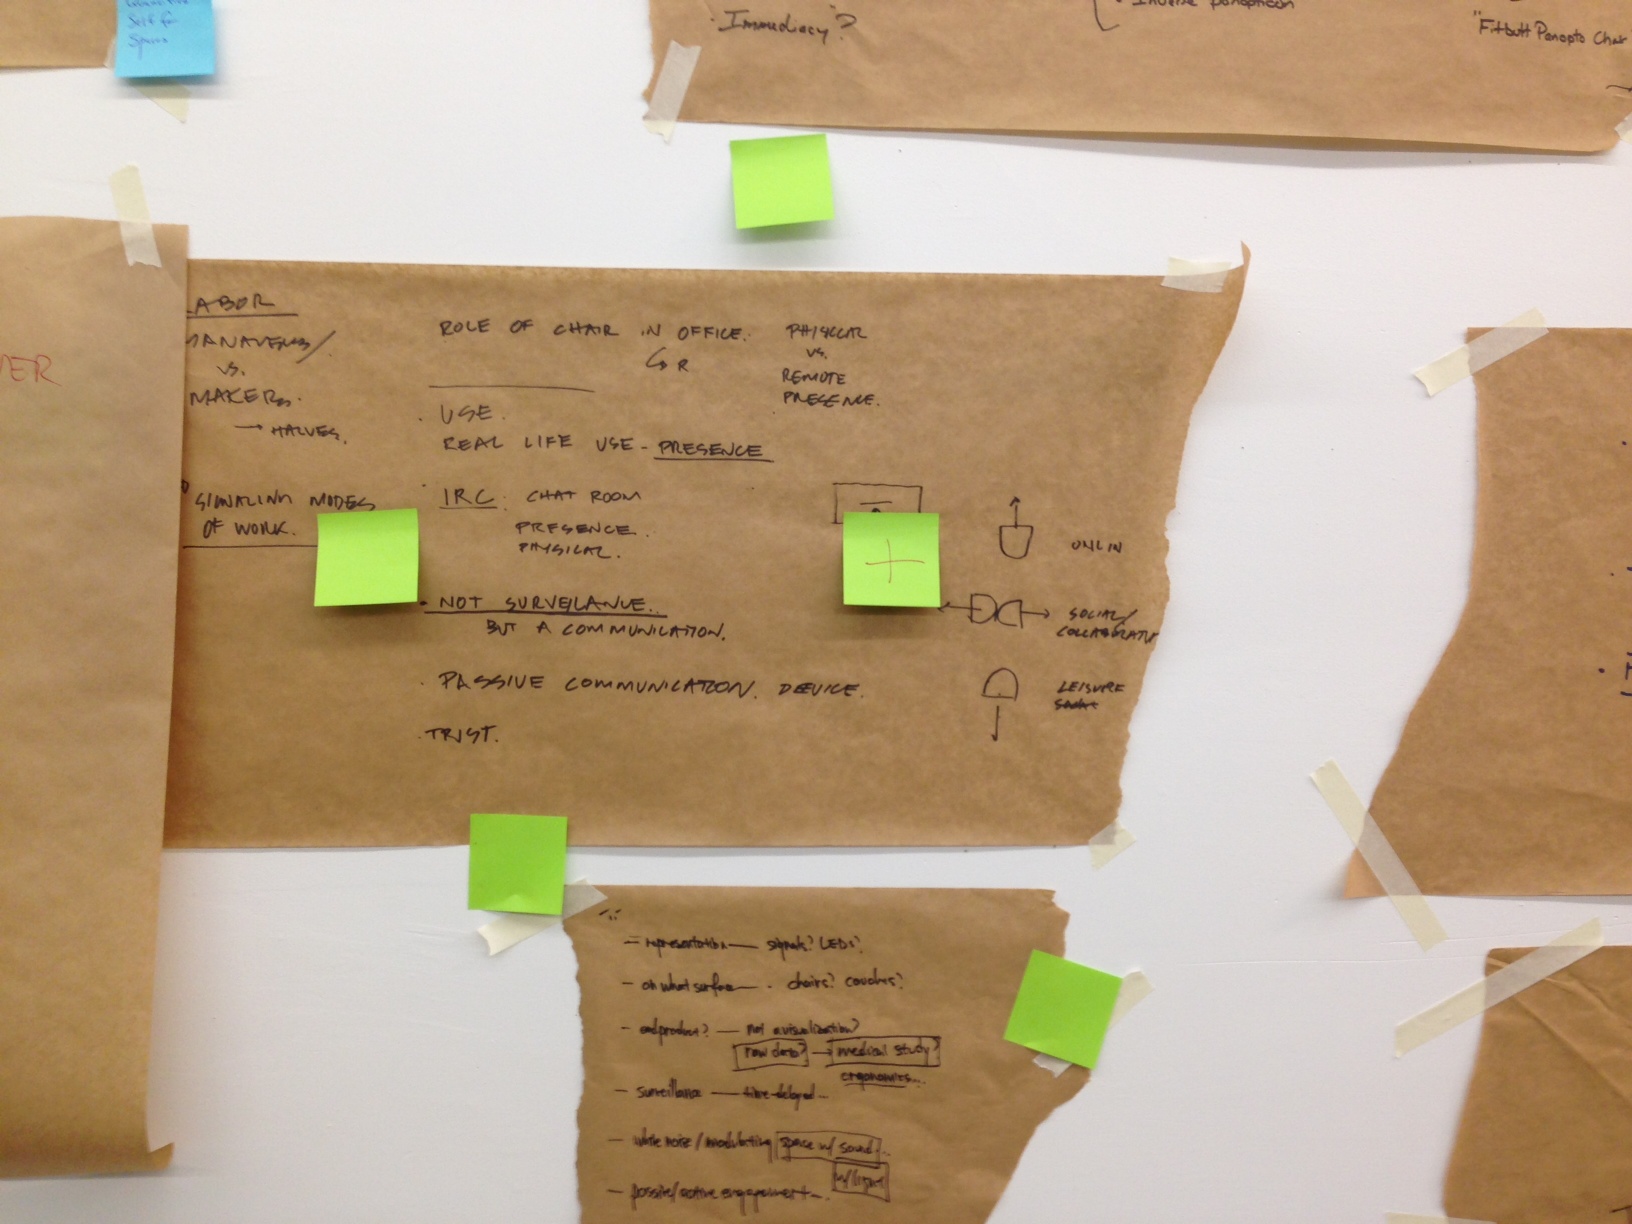 Self for
Spaces
"Immediacy"?
Inverse panopticon
"Fitbutt Panopto Chair
VER
LABOR
MANAGERS/
VS.
MAKERS.
→ HALVES.
SIGNALING MODES
OF WORK.
ROLE OF CHAIR IN OFFICE.
↳ R
PHYSICAL
VS.
REMOTE
PRESENCE.
· USE.
REAL LIFE USE - PRESENCE
· IRC. CHAT ROOM
PRESENCE.
PHYSICAL.
· NOT SURVEILANCE..
BUT A COMMUNICATION.
· PASSIVE COMMUNICATION. DEVICE.
· TRUST.
+
ONLIN
SOCIAL/
COLLABORATIV
LEISURE
— representation — signals? LEDs?
— on what surface — . chairs? couches?
— endproduct? — not a visualization?
raw data? → medical study?
ergonomics...
— surveillance — time-delayed —
— white noise / modulating space w/ sound...
w/ light
— passive/active engagement —.